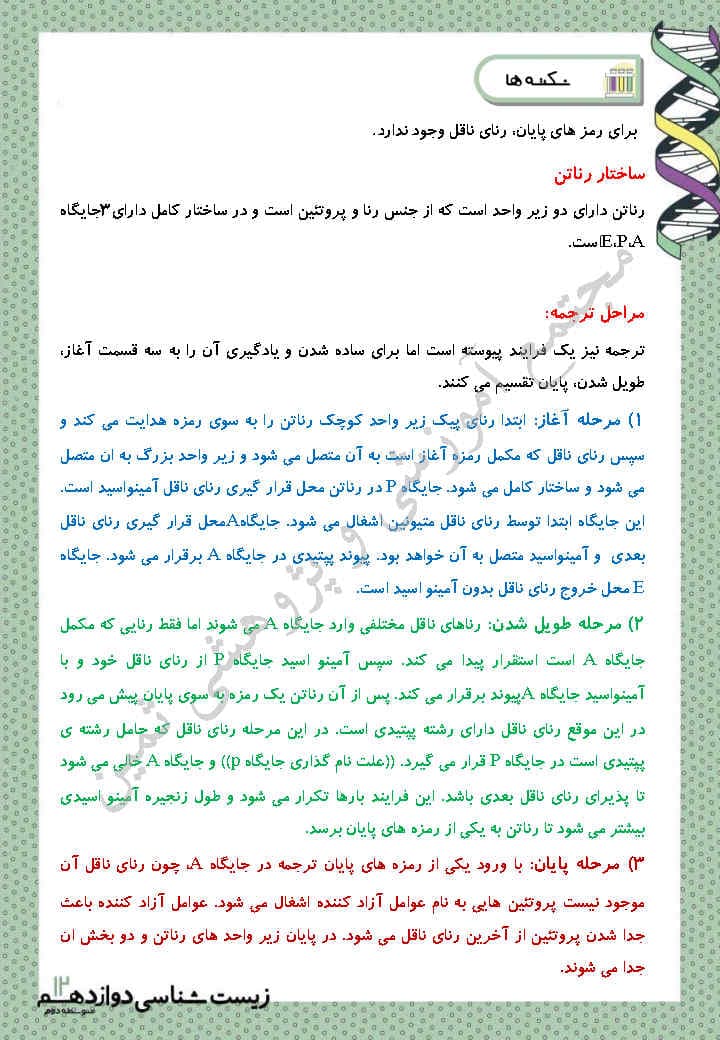 نکته ها
برای رمز های پایان، رنای ناقل وجود ندارد.
ساختار رناتن
رناتن دارای دو زیر واحد است که از جنس رنا و پروتئین است و در ساختار کامل دارای۳جایگاه
E،P،Aاست.
مراحل ترجمه:
ترجمه نیز یک فرایند پیوسته است اما برای ساده شدن و یادگیری آن را به سه قسمت آغاز،
طویل شدن، پایان تقسیم می کنند.
۱) مرحله آغاز: ابتدا رنای پیک زیر واحد کوچک رناتن را به سوی رمزه هدایت می کند و
سپس رنای ناقل که مکمل رمزه آغاز است به آن متصل می شود و زیر واحد بزرگ به ان متصل
می شود و ساختار کامل می شود. جایگاه P در رناتن محل قرار گیری رنای ناقل آمینواسید است.
این جایگاه ابتدا توسط رنای ناقل متیونین اشغال می شود. جایگاهAمحل قرار گیری رنای ناقل
بعدی و آمینواسید متصل به آن خواهد بود. پیوند پپتیدی در جایگاه A برقرار می شود. جایگاه
E محل خروج رنای ناقل بدون آمینو اسید است.
۲) مرحله طویل شدن: رناهای ناقل مختلفی وارد جایگاه A می شوند اما فقط رنایی که مکمل
جایگاه A است استقرار پیدا می کند. سپس آمینو اسید جایگاه P از رنای ناقل خود و با
آمینواسید جایگاه Aپیوند برقرار می کند. پس از آن رناتن یک رمزه به سوی پایان پیش می رود
در این موقع رنای ناقل دارای رشته پپتیدی است. در این مرحله رنای ناقل که حامل رشته ی
پپتیدی است در جایگاه P قرار می گیرد. ((علت نام گذاری جایگاه p)) و جایگاه A خالی می شود
تا پذیرای رنای ناقل بعدی باشد. این فرایند بارها تکرار می شود و طول زنجیره آمینو اسیدی
بیشتر می شود تا رناتن به یکی از رمزه های پایان برسد.
۳) مرحله پایان: با ورود یکی از رمزه های پایان ترجمه در جایگاه A، چون رنای ناقل آن
موجود نیست پروتئین هایی به نام عوامل آزاد کننده اشغال می شود. عوامل آزاد کننده باعث
جدا شدن پروتئین از آخرین رنای ناقل می شود. در پایان زیر واحد های رناتن و دو بخش ان
جدا می شوند.
مجتمع آموزشی و پژوهشی ثمین
زیست شناسی دوازدهم
۱۲
متوسطه دوم